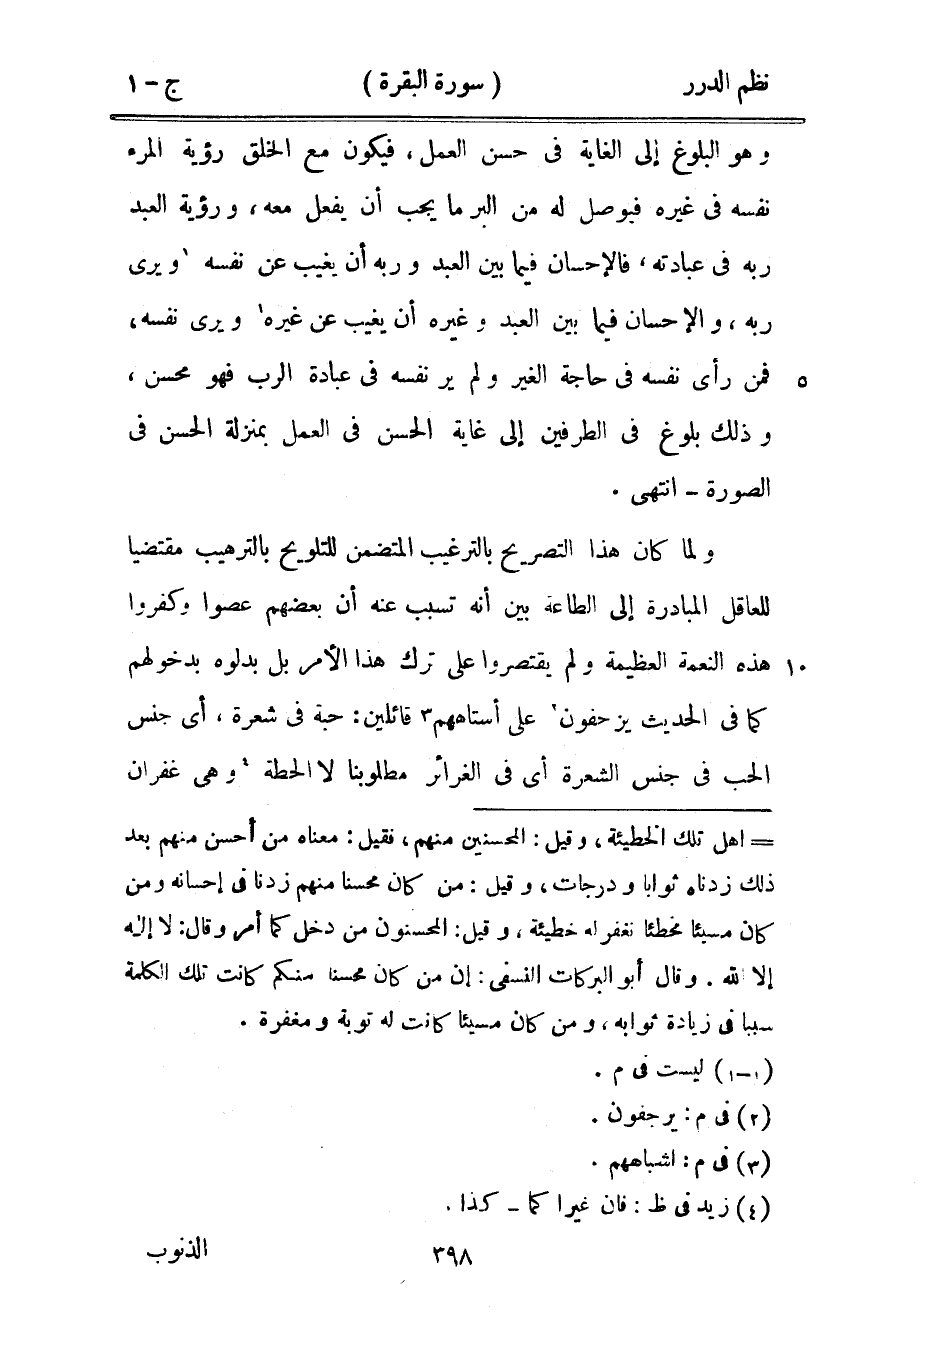 نظم الدرر ( سورة البقرة ) ج – ١
و هو البلوغ إلى الغاية فى حسن العمل ، فيكون مع الخلق رؤية المرء
نفسه فى غيره فيوصل له من البر ما يجب أن يفعل معه ، و رؤية العبد
ربه فى عبادته ، فالإحسان فيما بين العبد و ربه أن يغيب عن نفسه ١و يرى
ربه ، و الإحسان فيما بين العبد و غيره أن يغيب عن غيره١ و يرى نفسه ،
٥ فمن رأى نفسه فى حاجة الغير و لم ير نفسه فى عبادة الرب فهو محسن ،
و ذلك بلوغ فى الطرفين إلى غاية الحسن فى العمل بمنزلة الحسن فى
الصورة – انتهى .
و لما كان هذا التصريح بالترغيب المتضمن للتلويح بالترهيب مقتضيا
للعاقل المبادرة إلى الطاعة بين أنه تسبب عنه أن بعضهم عصوا وكفروا
١٠ هذه النعمة العظيمة و لم يقتصروا على ترك هذا الأمر بل بدلوه بدخولهم
كما فى الحديث يزحفون٢ على أستاههم٣ قائلين : حبة فى شعرة ، أى جنس
الحب فى جنس الشعرة أى فى الغرائر مطلوبنا لا الحطة٤ و هى غفران
= اهل تلك الخطيئة ، و قيل : المحسنين منهم ، فقيل : معناه من أحسن منهم بعد
ذلك زدناه ثوابا و درجات ، و قيل : من كان محسنا منهم زدنا فى إحسانه و من
كان مسيئا مخطئا نغفر له خطيئة ، و قيل : المحسنون من دخل كما أمر و قال : لا إله
إلا لله . و قال أبو البركات النسفى : إن من كان محسنا منكم كانت تلك الكلمة
سببا فى زيادة ثوابه ، و من كان مسيئا كانت له توبة و مغفرة .
(١–١) ليست فى م .
(٢) فى م : يرجفون .
(٣) فى م : اشباههم .
(٤) زيد فى ظ : فان غيرا كما – كذا .
٣٩٨ الذنوب